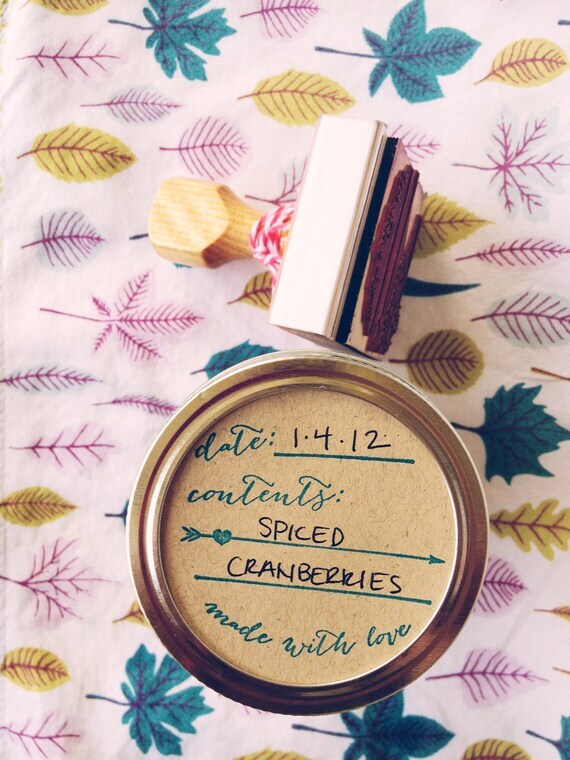 date: 1.4.12
contents:
SPICED
CRANBERRIES
made with love